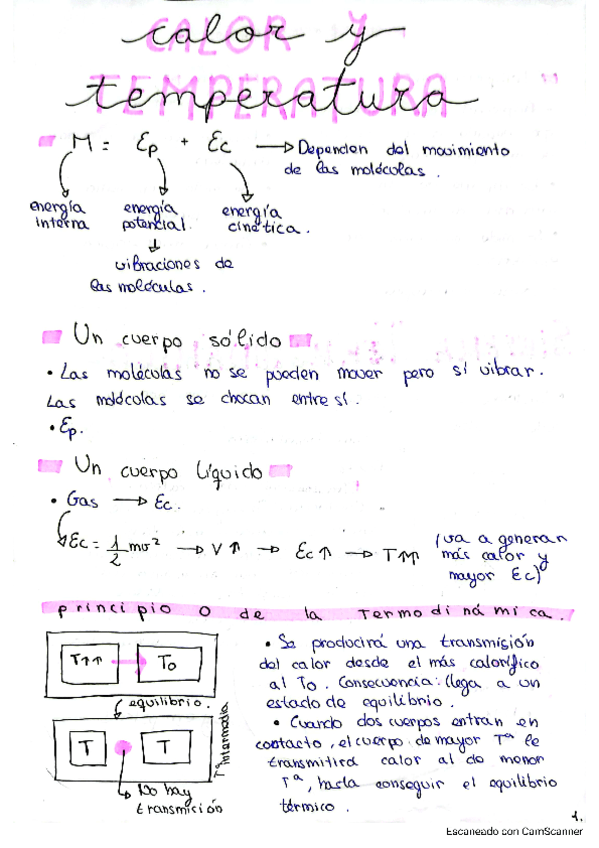 CALOR y
TEMPERATURA
calor y
temperatura
M = Ep + Ec → Dependen del movimiento
de las moléculas.
energía interna
energía potencial
energía cinética.
vibraciones de
las moléculas.
Un cuerpo sólido
• Las moléculas no se pueden mover pero sí vibrar.
Las moléculas se chocan entre sí.
• Ep.
Un cuerpo líquido
• Gas → Ec.
Ec = 1/2 mv² → V↑ → Ec↑ → T↑↑ (va a generar
más calor y
mayor Ec)
Principio 0 de la Termodinámica.
T↑↑ → To
equilibrio.
T T
Tª intermedia
No hay
transmisión
• Se producirá una transmisión
del calor desde el más calorífico
al To. Consecuencia: llega a un
estado de equilibrio.
• Cuando dos cuerpos entran en
contacto, el cuerpo de mayor Tª le
transmitirá calor al de menor
Tª, hasta conseguir el equilibrio
térmico.
1.
Escaneado con CamScanner